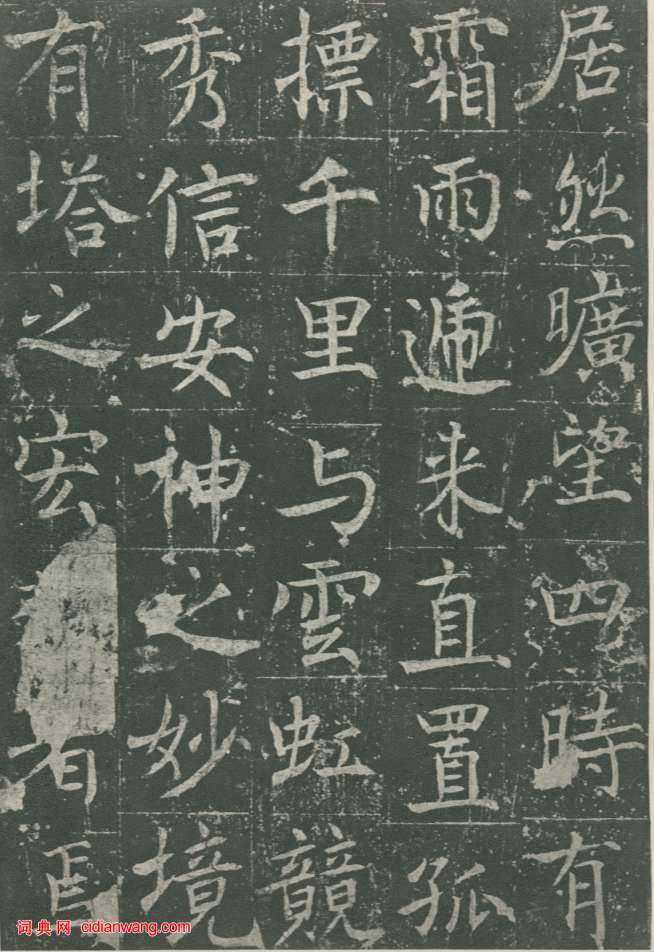 居然曠望四時有
霜雨遞来直置孤
摽千里与雲虹競
秀信安神之妙境
有塔之宏者焉
词典网 cidianwang.com